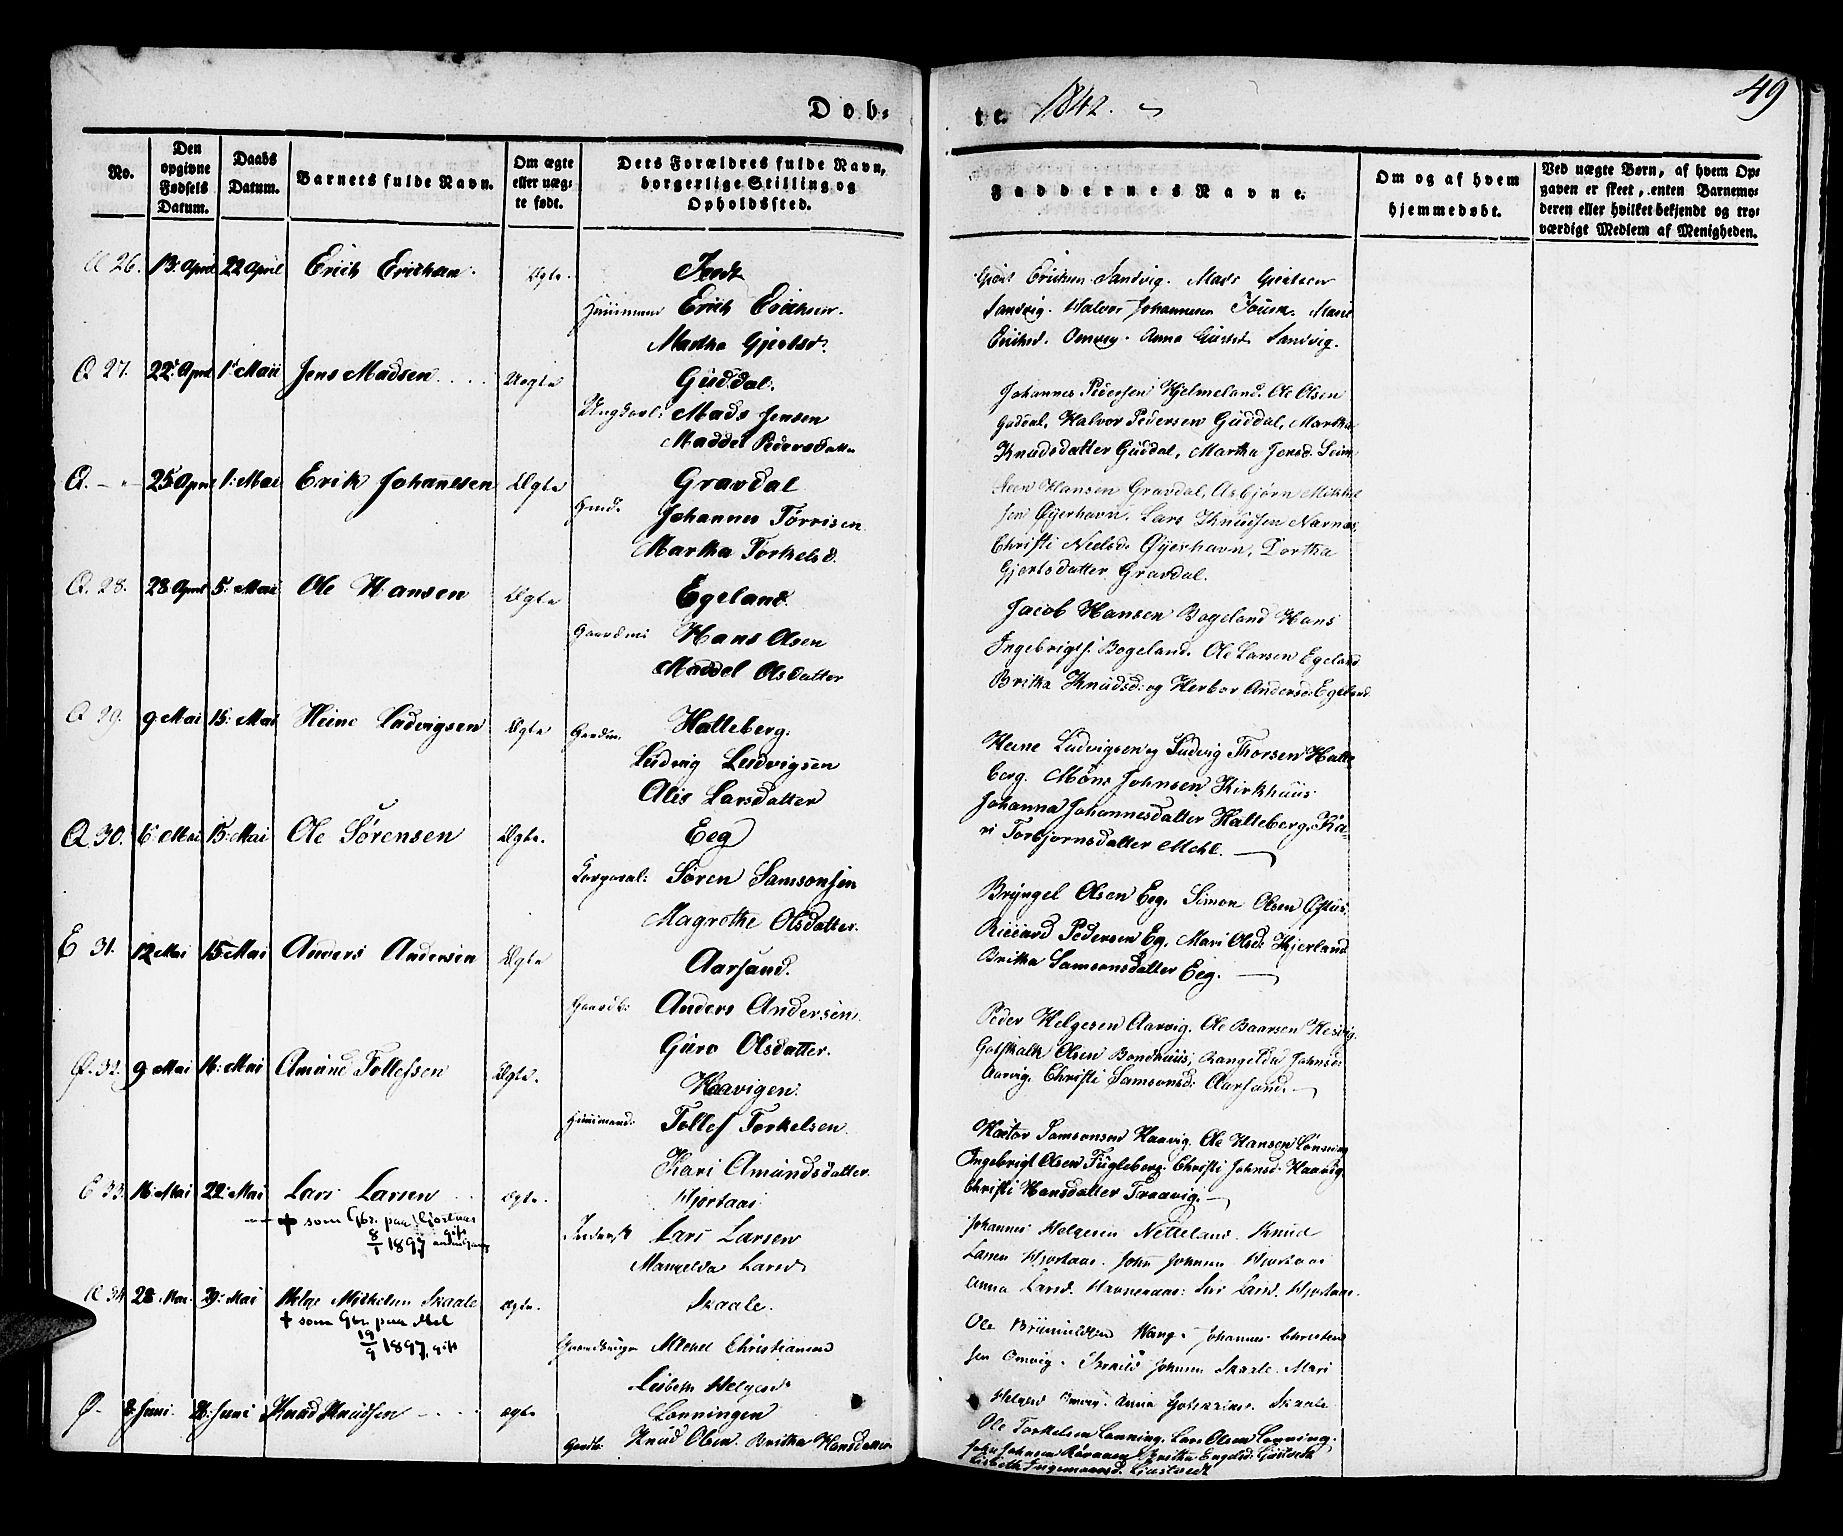 Døb-
te. 1842.
49
No.
Den opgivne Fødsels Datum.
Daabs Datum.
Barnets fulde Navn.
Om ægte eller uæg- te født.
Dets Forældres fulde Navn, borgerlige Stilling og Opholdssted.
Faddernes Navne.
Om og af hvem hjemmedøbt.
Ved uægte Børn, af hvem Op- gaven er skeet, enten Barnemo- deren eller hvilket bekjendt og tro- værdigt Medlem af Menigheden.
26. 13. April 22 April Erich Erichsen. Ægte.
Erich Erichsen.
Martha Gjertsd.
Erichsen Sandvig. Mads Gjertsen
Sandvig. Halvor Johannesen
Omvig. Anna Sandvig.
Q 27. 22. April 1. Maii Jens Madsen Uegte
Guddal.
Ungkarl: Mads Jensen
Maddel Pedersdatter
Johannes Pedersen Hjelmeland. Ole Olsen
Guddal, Halvor Pedersen Guddal, Martha
Knudsdatter Guddal, Martha Jensd. Seim
Q. - " - 25 April 1. Mai Erik Johannesen Ægte
Gravdal
Johannes Tørrisen
Martha Torkelsd.
Hansen Gravdal, Asbjørn Mikkel
sen Øyerhavn. Lars Knudsen Narnes
Christi Nielsd. Øyerhavn, Dortha
Gjertsdatter Gravdal.
Q. 28. 28 April 5. Mai Ole Hansen Ægte
Egeland.
Hans Olsen
Maddel Olsdatter
Jacob Hansen Bogeland Hans
Ingebrigts. Bogeland. Ole Larsen Egeland
Britha Knudsd: og Herbor Andersd: Egeland
Q 29. 9 Mai 15. Mai Heine Ludvigsen Ægte
Halleberg.
Ludvig Ludvigsen
Alis Larsdatter
Heine Ludvigsen og Ludvig Thorsen Halle
berg. Møns Johnsen Kirkhuus
Johanna Johannesdatter Halleberg, Ka-
ri Torbjornsdatter Mehl.
Q. 30. 6. Mai 15. Mai Ole Sørensen Ægte.
Eeg
Corporal: Søren Samsonsen
Magrethe Olsdatter.
Bryngel Olsen Eeg, Simon Olsen
Pedersen Eg, Mari Olsd: Hjerland
Britha Samsonsdatter Eeg.
E 31. 12 Mai 15 Mai Anders Andersen Ægte
Aarsand.
Anders Andersen.
Guro Olsdatter.
Peder Helgesen Aarvig. Ole Baarsen
Gotskalk Olsen Bondhuus, Rangelda Johnsd:
Aarvig. Christi Samsonsd: Aarsand.
Ø. 32. 9 Mai 16. Mai Amund Tollefsen Ægte.
Haavigen.
Huusmand: Tollef Torkelsen.
Kari Amundsdatter.
Samsonsen Haavig. Ole Hansen Lønning
Ingebrigt Olsen Fugleberg. Christi Johnsd. Haavig
Christi Hansdatter Traavig.
E 33. 16. Mai 22. Mai Lars Larsen Ægte.
+ som Gbr. paa Hjortaas
8/1 1897 gift
Hjortaas
Lars Larsen
Larsd.
Johannes Helgesen Netteland. Knud
Larsen Hjortaas. John Johnsen Hjortaas
Anna Larsd. Siri Larsd. Hjortaas.
34 28. Mai. 29. Mai Helge Mikkelsen Skaale Ægte.
+ som Gbr. paa Mel
19/9 1897, gift
Skaale.
Gaardbruger Mickel Christiansen
Lisbeth Helgesd.
Ole Wang. Johannes Christen
sen Omvig. Johnsen Skaale. Mari
Helgesd Omvig. Anna Skaale
Ø - 8. Juni. 26. Juni Knud Knudsen ægte
Lønningen
Knud Olsen. Britha Hansdatter
Ole Torkelsen Lønning, Lars Olsen Lønning.
John Johnsen Britha Engelsd.
Lisbeth Ingemaarsd.